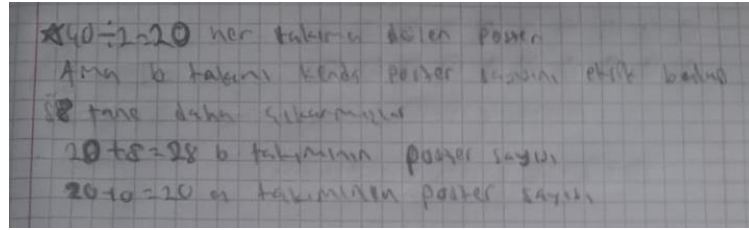 ★40÷2=20 her takıma düşen poster
Ama b takımı kendi poster sayısını eksik bulup
8 tane daha çıkarmışlar
20+8=28 b takımının poster sayısı
20+0=20 a takımının poster sayısı